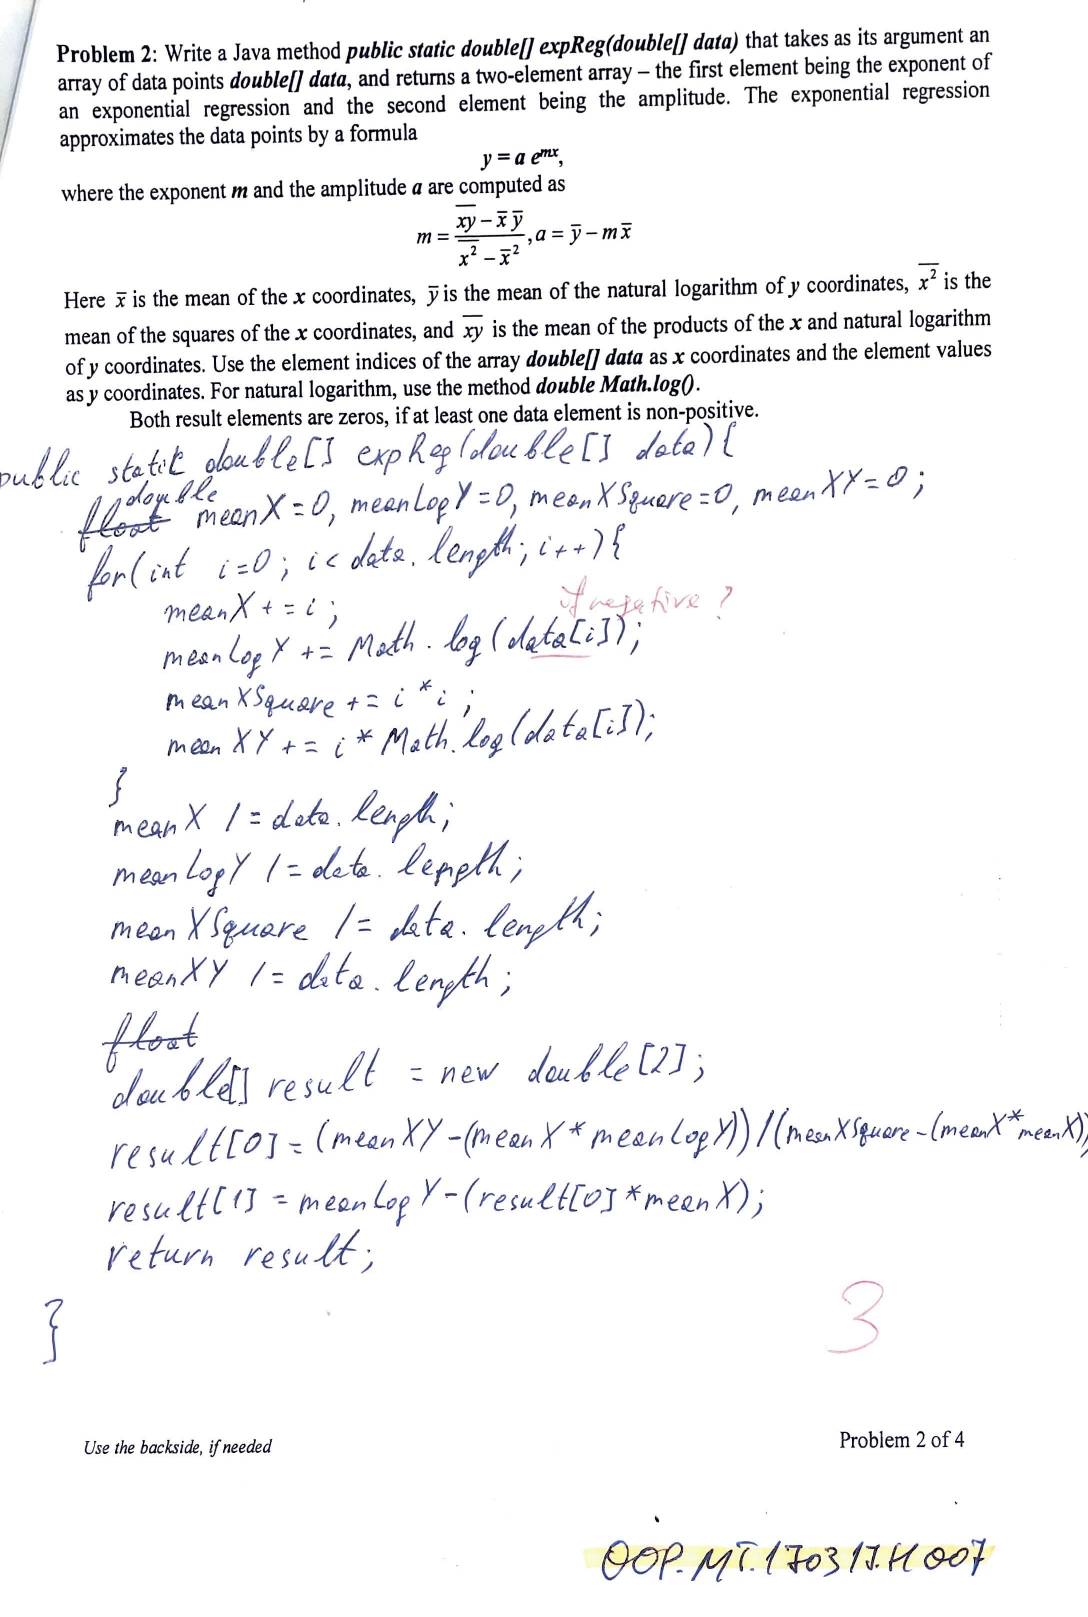 Problem 2: Write a Java method public static double[] expReg(double[] data) that takes as its argument an
array of data points double[] data, and returns a two-element array – the first element being the exponent of
an exponential regression and the second element being the amplitude. The exponential regression
approximates the data points by a formula
y = a e^{mx},
where the exponent m and the amplitude a are computed as
m = \frac{\overline{xy} - \bar{x}\,\bar{y}}{\overline{x^2} - \bar{x}^2}, a = \bar{y} - m\bar{x}
Here x̄ is the mean of the x coordinates, ȳ is the mean of the natural logarithm of y coordinates, \overline{x^2} is the
mean of the squares of the x coordinates, and \overline{xy} is the mean of the products of the x and natural logarithm
of y coordinates. Use the element indices of the array double[] data as x coordinates and the element values
as y coordinates. For natural logarithm, use the method double Math.log().
Both result elements are zeros, if at least one data element is non-positive.
public static double[] expReg(double[] data){
double
float meanX = 0, meanLogY = 0, meanXSquare = 0, meanXY = 0;
for(int i=0; i< data.length; i++){
meanX += i;
if negative?
meanLogY += Math.log(data[i]);
meanXSquare += i*i;
meanXY += i* Math.log(data[i]);
}
meanX /= data.length;
meanLogY /= data.length;
meanXSquare /= data.length;
meanXY /= data.length;
float
double[] result = new double[2];
result[0] = (meanXY-(meanX*meanLogY))/(meanXSquare-(meanX*meanX));
result[1] = meanLogY-(result[0]*meanX);
return result;
}
3
Use the backside, if needed
Problem 2 of 4
OOP.MT.170317.H007